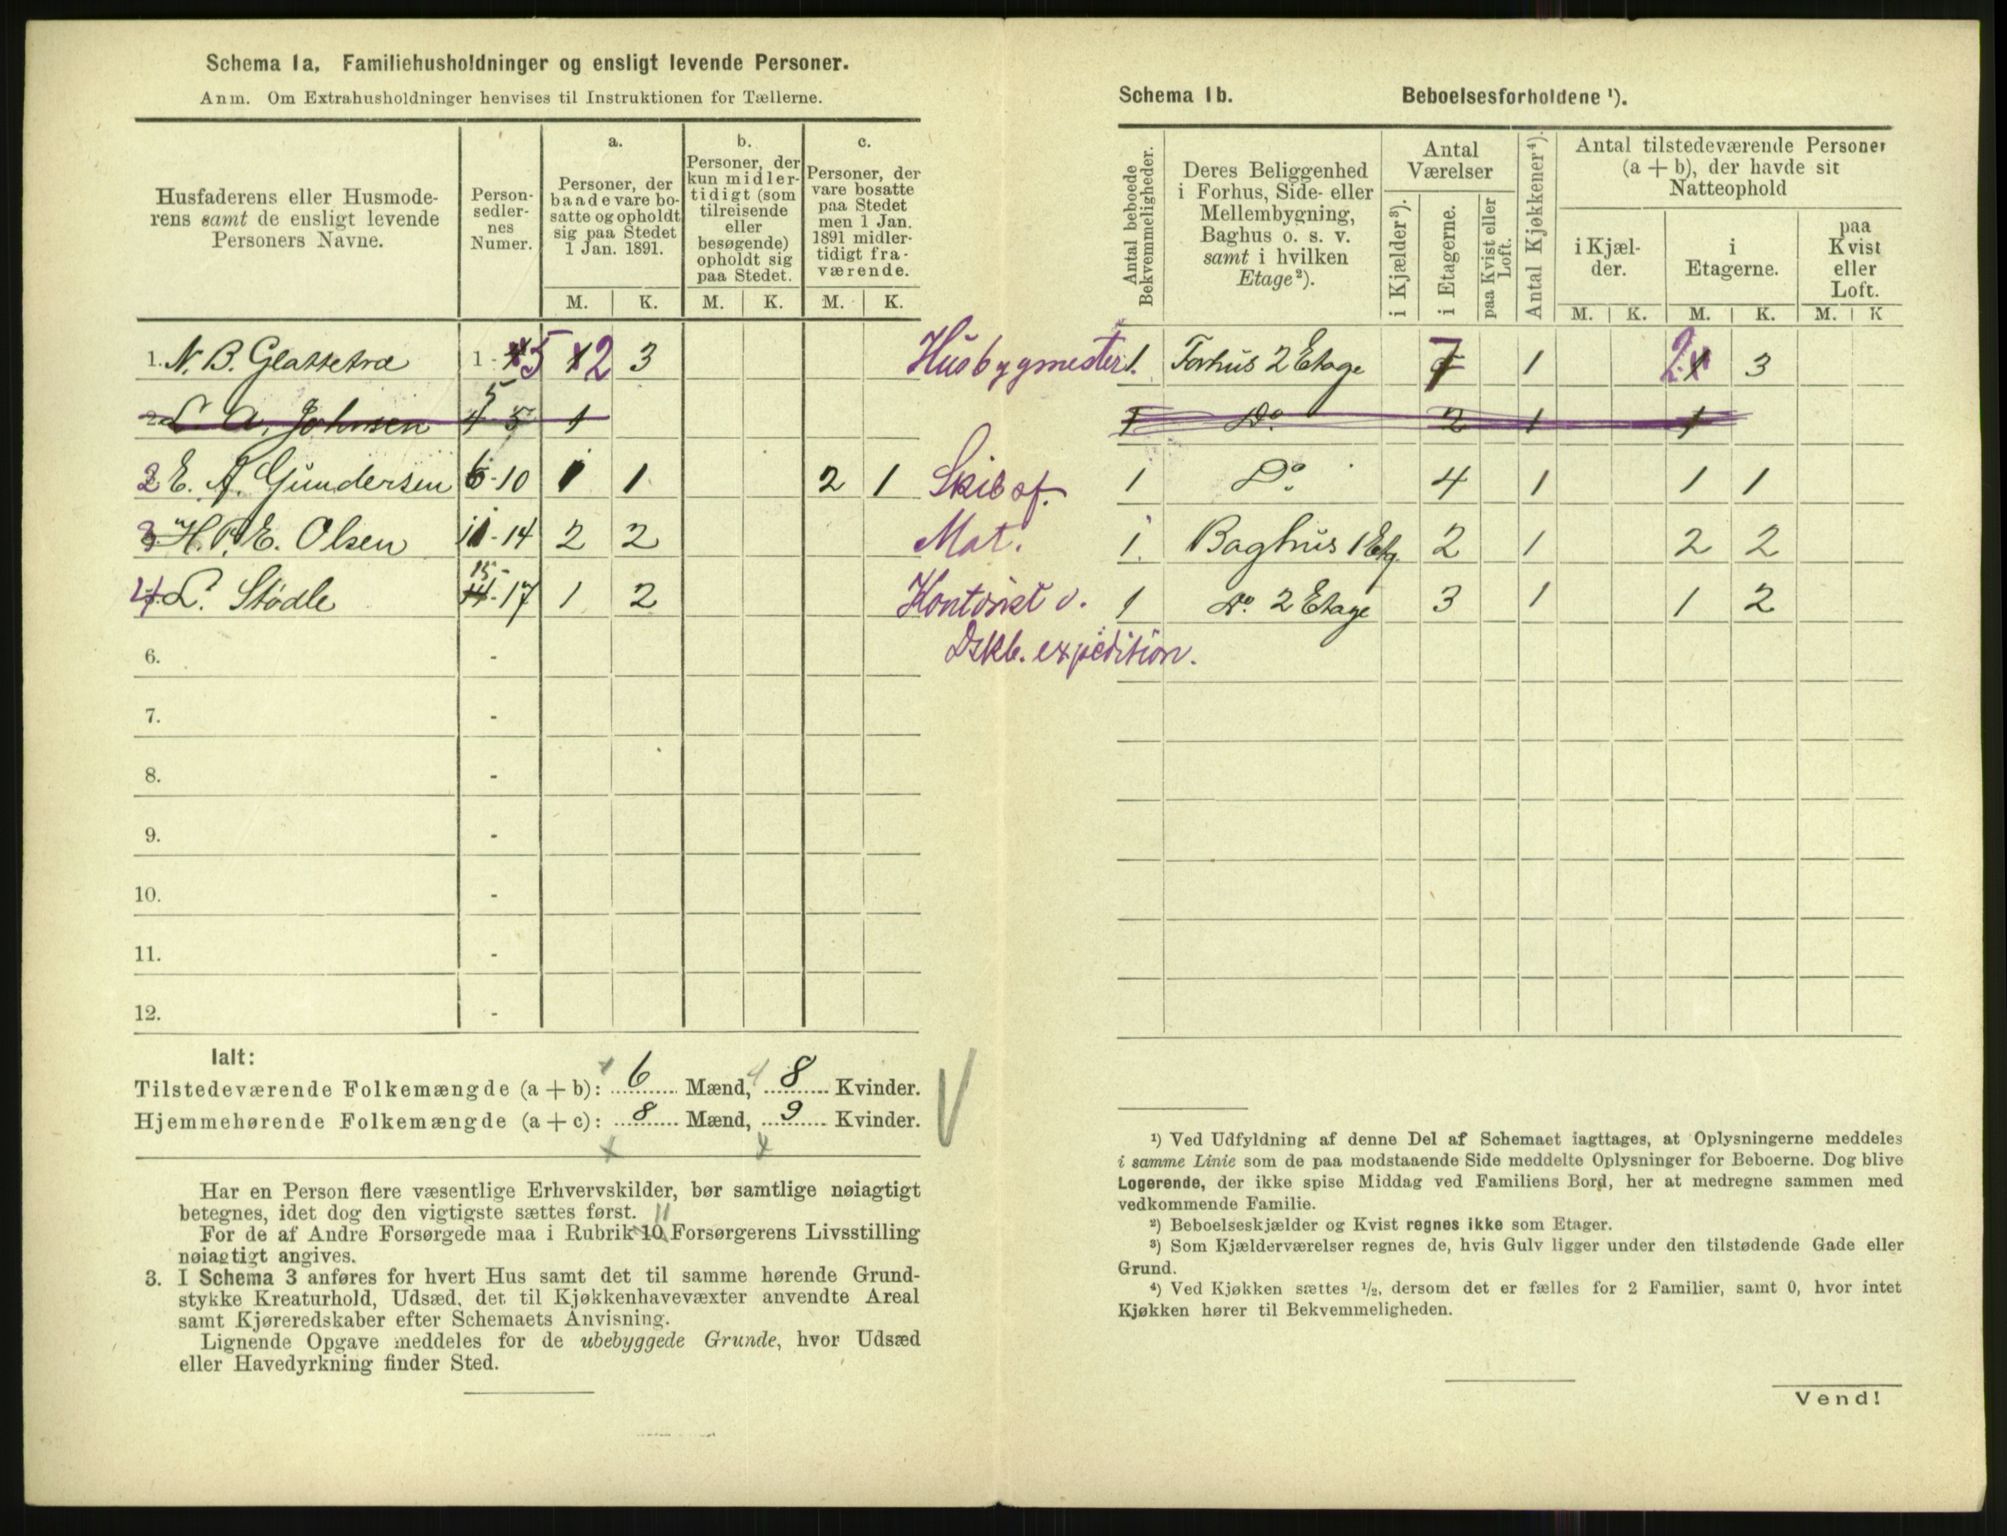 Schema 1a. Familiehusholdninger og ensligt levende Personer.
Anm. Om Extrahusholdninger henvises til Instruktionen for Tællerne.
Husfaderens eller Husmoderens samt de ensligt levende Personers Navne.
Personsedlernes Numer.
a. Personer, der baade vare bosatte og opholdt sig paa Stedet 1 Jan. 1891.
b. Personer, der kun midlertidigt (som tilreisende eller besøgende) opholdt sig paa Stedet.
c. Personer, der vare bosatte paa Stedet men 1 Jan. 1891 midlertidigt fraværende.
M. K. M. K. M. K.
1. N. B. Glattetræ 1 - 5 2 3 Husbygmester
L. A. Johnsen 5 1
2 E. A. Gundersen 6-10 1 1 2 1 Skibsf.
3 H. P. E. Olsen 11-14 2 2 Mat.
4 L. Stødle 15-17 1 2 Kontorist v.
Dskb. expedition.
6. -
7. -
8. -
9. -
10. -
11. -
12. -
Ialt:
Tilstedeværende Folkemængde (a + b): 6 Mænd, 8 Kvinder.
Hjemmehørende Folkemængde (a + c): 8 Mænd, 9 Kvinder.
Har en Person flere væsentlige Erhvervskilder, bør samtlige nøiagtigt
betegnes, idet dog den vigtigste sættes først. 11
For de af Andre Forsørgede maa i Rubrik 10 Forsørgerens Livsstilling
nøiagtigt angives.
3. I Schema 3 anføres for hvert Hus samt det til samme hørende Grund-
stykke Kreaturhold, Udsæd, det til Kjøkkenhavevæxter anvendte Areal
samt Kjøreredskaber efter Schemaets Anvisning.
Lignende Opgave meddeles for de ubebyggede Grunde, hvor Udsæd
eller Havedyrkning finder Sted.
Schema 1b. Beboelsesforholdene ¹).
Antal beboede Bekvemmeligheder.
Deres Beliggenhed i Forhus, Side- eller Mellembygning, Baghus o. s. v. samt i hvilken Etage²).
Antal Værelser
i Kjælder³).
i Etagerne.
paa Kvist eller Loft.
Antal Kjøkkener⁴).
Antal tilstedeværende Personer (a + b), der havde sit Natteophold
i Kjælder.
i Etagerne.
paa Kvist eller Loft.
M. K. M. K. M. K
1. Forhus 2 Etage 7 1 2 3
1 Do 2 1 1
1 Do 4 1 1 1
1. Baghus 1 Etg. 2 1 2 2
1 Do. 2 Etage 3 1 1 2
¹) Ved Udfyldning af denne Del af Schemaet iagttages, at Oplysningerne meddeles
i samme Linie som de paa modstaaende Side meddelte Oplysninger for Beboerne. Dog blive
Logerende, der ikke spise Middag ved Familiens Bord, her at medregne sammen med
vedkommende Familie.
²) Beboelseskjælder og Kvist regnes ikke som Etager.
³) Som Kjælderværelser regnes de, hvis Gulv ligger under den tilstødende Gade eller
Grund.
⁴) Ved Kjøkken sættes ½, dersom det er fælles for 2 Familier, samt 0, hvor intet
Kjøkken hører til Bekvemmeligheden.
Vend!